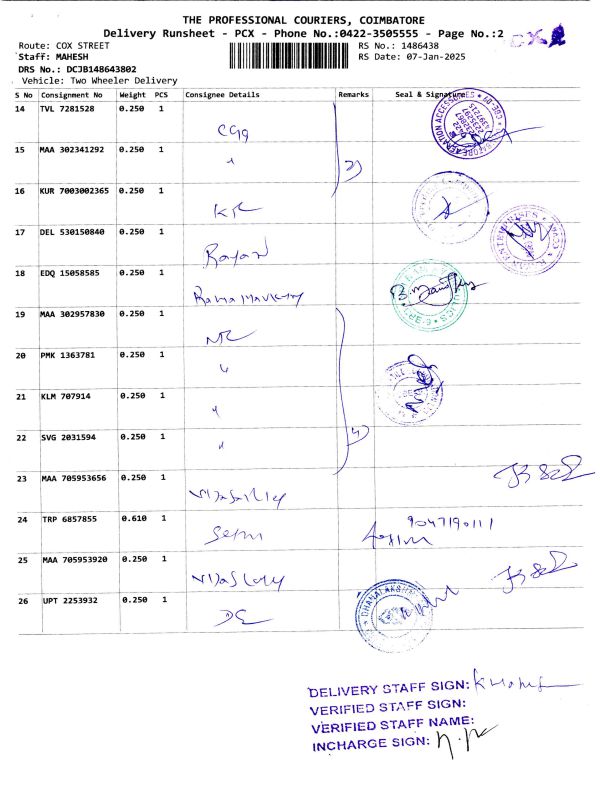 THE PROFESSIONAL COURIERS, COIMBATORE
Delivery Runsheet - PCX - Phone No.:0422-3505555 - Page No.:2
Route: COX STREET RS No.: 1486438
Staff: MAHESH RS Date: 07-Jan-2025
DRS No.: DCJB148643802
Vehicle: Two Wheeler Delivery
S No Consignment No Weight PCS Consignee Details Remarks Seal & Signature
14 TVL 7281528 0.250 1
15 MAA 302341292 0.250 1
16 KUR 7003002365 0.250 1
17 DEL 530150840 0.250 1
18 EDQ 15058585 0.250 1
19 MAA 302957830 0.250 1
20 PMK 1363781 0.250 1
21 KLM 707914 0.250 1
22 SVG 2031594 0.250 1
23 MAA 705953656 0.250 1
24 TRP 6857855 0.610 1
9047190111
25 MAA 705953920 0.250 1
26 UPT 2253932 0.250 1
DELIVERY STAFF SIGN:
VERIFIED STAFF SIGN:
VERIFIED STAFF NAME:
INCHARGE SIGN: